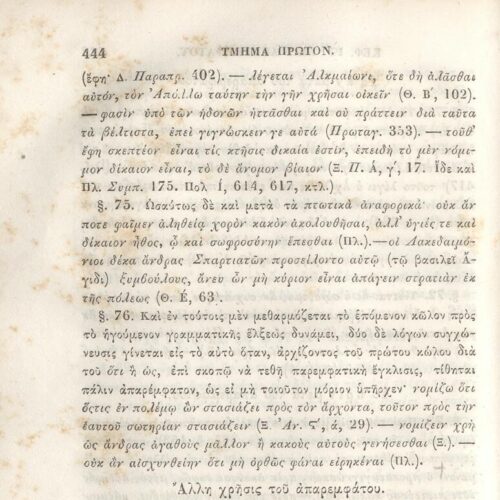 444 ΤΜΗΜΑ ΠΡΩΤΟΝ.
(ἔφη· Δ. Παραπρ. 402). — λέγεται Ἀλκμαίωνι, ὅτε δὴ ἀλᾶσθαι
αὐτόν, τὸν Ἀπόλλω ταύτην τὴν γῆν χρῆσαι οἰκεῖν (Θ. Β′, 102).
— φασὶν ὑπὸ τῶν ἡδονῶν ἡττᾶσθαι καὶ οὐ πράττειν διὰ ταῦτα
τὰ βέλτιστα, ἐπεὶ γιγνώσκειν γε αὐτά (Πρωταγ. 353). — τοῦθ'
ἔφη σκεπτέον εἶναι τίς κτῆσις δικαία ἐστίν, ἐπειδὴ τὸ μὲν νόμι-
μον δίκαιον εἶναι, τὸ δὲ ἄνομον βίαιον (Ξ. Π. Ά, γ′, 17. Ἴδε καὶ
Πλ. Συμπ. 175. Πολ Ί, 614, 617, κτλ.)
§. 75. Ὡσαύτως δὲ καὶ μετὰ τὰ πτωτικὰ ἀναφορικά· οὐκ ἄν
ποτε φαῖμεν ἀληθείᾳ χορὸν κακὸν ἀκολουθῆσαι, ἀλλ' ὑγιές τε καὶ
δίκαιον ἦθος, ᾧ καὶ σωφροσύνην ἕπεσθαι (Πλ.). — οἱ Λακεδαιμό-
νιοι δέκα ἄνδρας Σπαρτιατῶν προσείλοντο αὐτῷ (τῷ βασιλεῖ Ἄ-
γιδι) ξυμβούλους, ἄνευ ὧν μὴ κύριον εἶναι ἀπάγειν στρατιὰν ἐκ
τῆς πόλεως (Θ. Έ, 63).
§. 76. Καὶ ἐν τούτοις μὲν μεθαρμόζεται τὸ ἑπόμενον κῶλον πρὸς
τὸ ἡγούμενον γραμματικῆς ἕλξεως δυνάμει, δύο δὲ λόγων συγχώ-
νευσις γίνεται εἰς τὸ αὐτὸ ὅταν, ἀρχίζοντος τοῦ πρώτου κώλου διὰ
τοῦ ὅτι ἢ ὡς, ἐπὶ σκοπῷ νὰ τεθῇ παρεμφατικὴ ἔγκλισις, τίθηται
πάλιν ἀπαρέμφατον, ὡς εἰ μὴ τοιοῦτον μόριον ὑπῆρχεν· νομίζω ὅτι
ὅςτις ἐν πολέμῳ ὢν στασιάζει πρὸς τὸν ἄρχοντα, τοῦτον πρὸς τὴν
ἑαυτοῦ σωτηρίαν στασιάζειν (Ξ. Ἀν. ϛ′, ά, 29). — νομίζειν χρὴ
ὡς ἄνδρας ἀγαθοὺς μᾶλλον ἢ κακοὺς αὐτοὺς γενήσεσθαι (Ξ.). —
οὐκ ἂν αἰσχυνθεῖην ὅτι μὴ ὀρθῶς φάναι εἰρηκέναι (Πλ.).
Ἄλλη χρῆσις τοῦ ἀπαρεμφάτου.